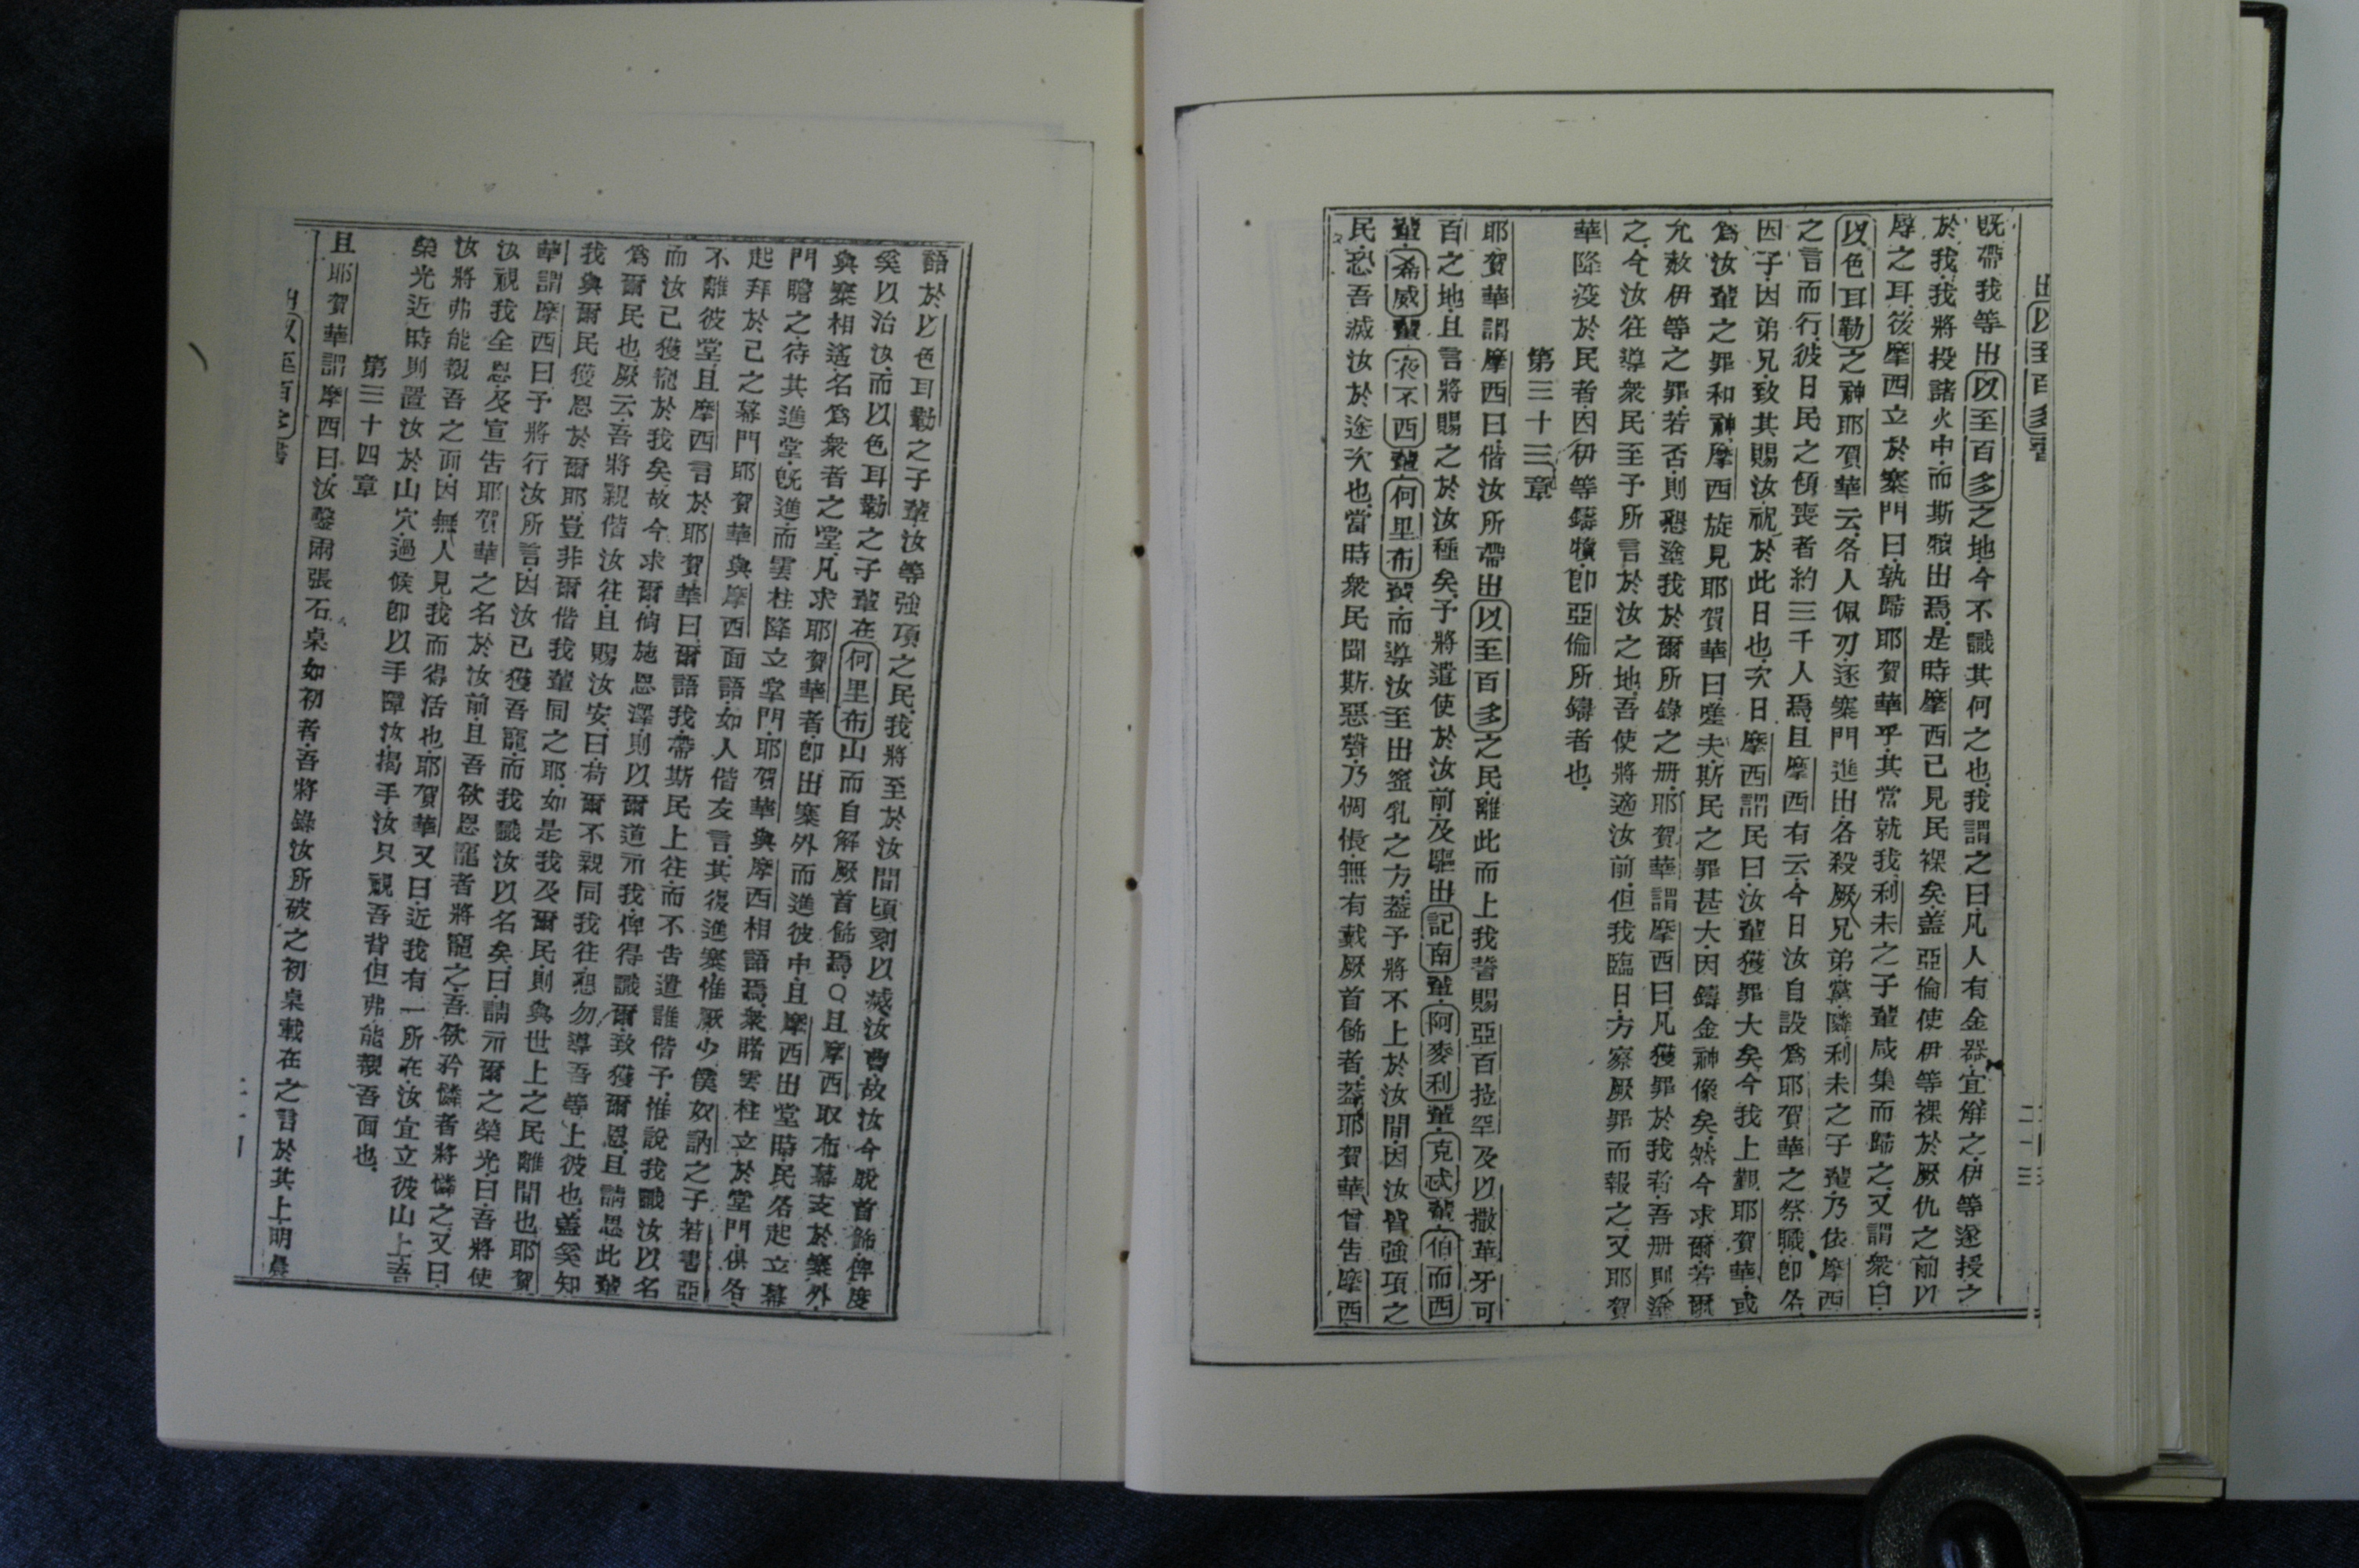 出以至百多書
二十三
既帶我等出以至百多之地今不識其何之也我謂之曰凡人有金器宜解之伊等遂授之
於我我將投諸火中而斯犢出焉是時摩西已見民裸矣蓋亞倫使伊等裸於厥仇之前以
辱之耳後摩西立於寨門曰孰歸耶賀華乎其當就我利未之子輩咸集而歸之又謂衆曰
以色耳勒之神耶賀華云各人佩刃逐寨門進出各殺厥兄弟黨隣利未之子輩乃依摩西
之言而行彼日民之傾喪者約三千人焉且摩西有云今日汝自設爲耶賀華之祭職卽各
因子因弟兄致其賜汝祝於此日也次日摩西謂民曰汝輩獲罪大矣今我上覲耶賀華或
爲汝輩之罪和神摩西旋見耶賀華曰嗟夫斯民之罪甚大因鑄金神像矣然今求爾若爾
允赦伊等之罪若否則懇塗我於爾所錄之册耶賀華謂摩西曰凡獲罪於我者吾册則塗
之今汝往導衆民至予所言於汝之地吾使將適汝前但我臨日方察厥罪而報之又耶賀
華降疫於民者因伊等鑄犢卽亞倫所鑄者也
第三十三章
耶賀華謂摩西曰偕汝所帶出以至百多之民離此而上我誓賜亞百拉罕及以撒華牙可
百之地且言將賜之於汝種矣予將遣使於汝前及驅出記南輩阿麥利輩克忒輩伯而西
輩希威輩夜不西輩何里布輩而導汝至出蜜乳之方蓋予將不上於汝間因汝皆強項之
民恐吾滅汝於途次也當時衆民聞斯惡聲乃惆悵無有戴厥首飾者蓋耶賀華曾告摩西
語於以色耳勒之子輩汝等強項之民我將至於汝間頃刻以滅汝曹故汝今脫首飾俾度
奚以治汝而以色耳勒之子輩在何里布山而自解厥首飾焉○且摩西取布幕支於寨外
與寨相遙名爲衆者之堂凡求耶賀華者卽出寨外而進彼中且摩西出堂時民各起立幕
門瞻之待其進堂旣進而雲柱降立堂門耶賀華與摩西相語焉衆睹雲柱立於堂門俱各
起拜於己之幕門耶賀華與摩西面語如人偕友言其復進寨惟厥少僕奴訥之子若書亞
不離彼堂且摩西言於耶賀華曰爾語我帶斯民上往而不告遣誰偕予惟說我識汝以名
而汝已獲寵於我矣故今求爾倘施恩澤則以爾道示我俾得識爾致獲爾恩且請思此輩
爲爾民也厥云吾將親偕汝往且賜汝安曰苟爾不親同我往懇勿導吾等上彼也蓋奚知
我與爾民獲恩於爾耶豈非爾偕我輩同之耶如是我及爾民則與世上之民離間也耶賀
華謂摩西曰予將行汝所言因汝已獲吾寵而我識汝以名矣曰請示爾之榮光曰吾將使
汝視我全恩及宣告耶賀華之名於汝前且吾欲恩寵者將寵之吾欲矜憐者將憐之又曰
汝將弗能覩吾之面因無人見我而得活也耶賀華又曰近我有一所在汝宜立彼山上吾
榮光近時則置汝於山穴過候卽以手障汝揭手汝只覩吾背但弗能覩吾面也
第三十四章
且耶賀華謂摩西曰汝鑿兩張石桌如初者吾將錄汝所破之初桌載在之言於其上明晨
出以至百多書
二十四